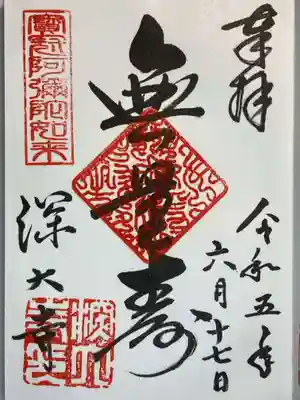 奉拝
令和五年
六月十七日
無量寿
寳冠阿彌陀如来
深大寺